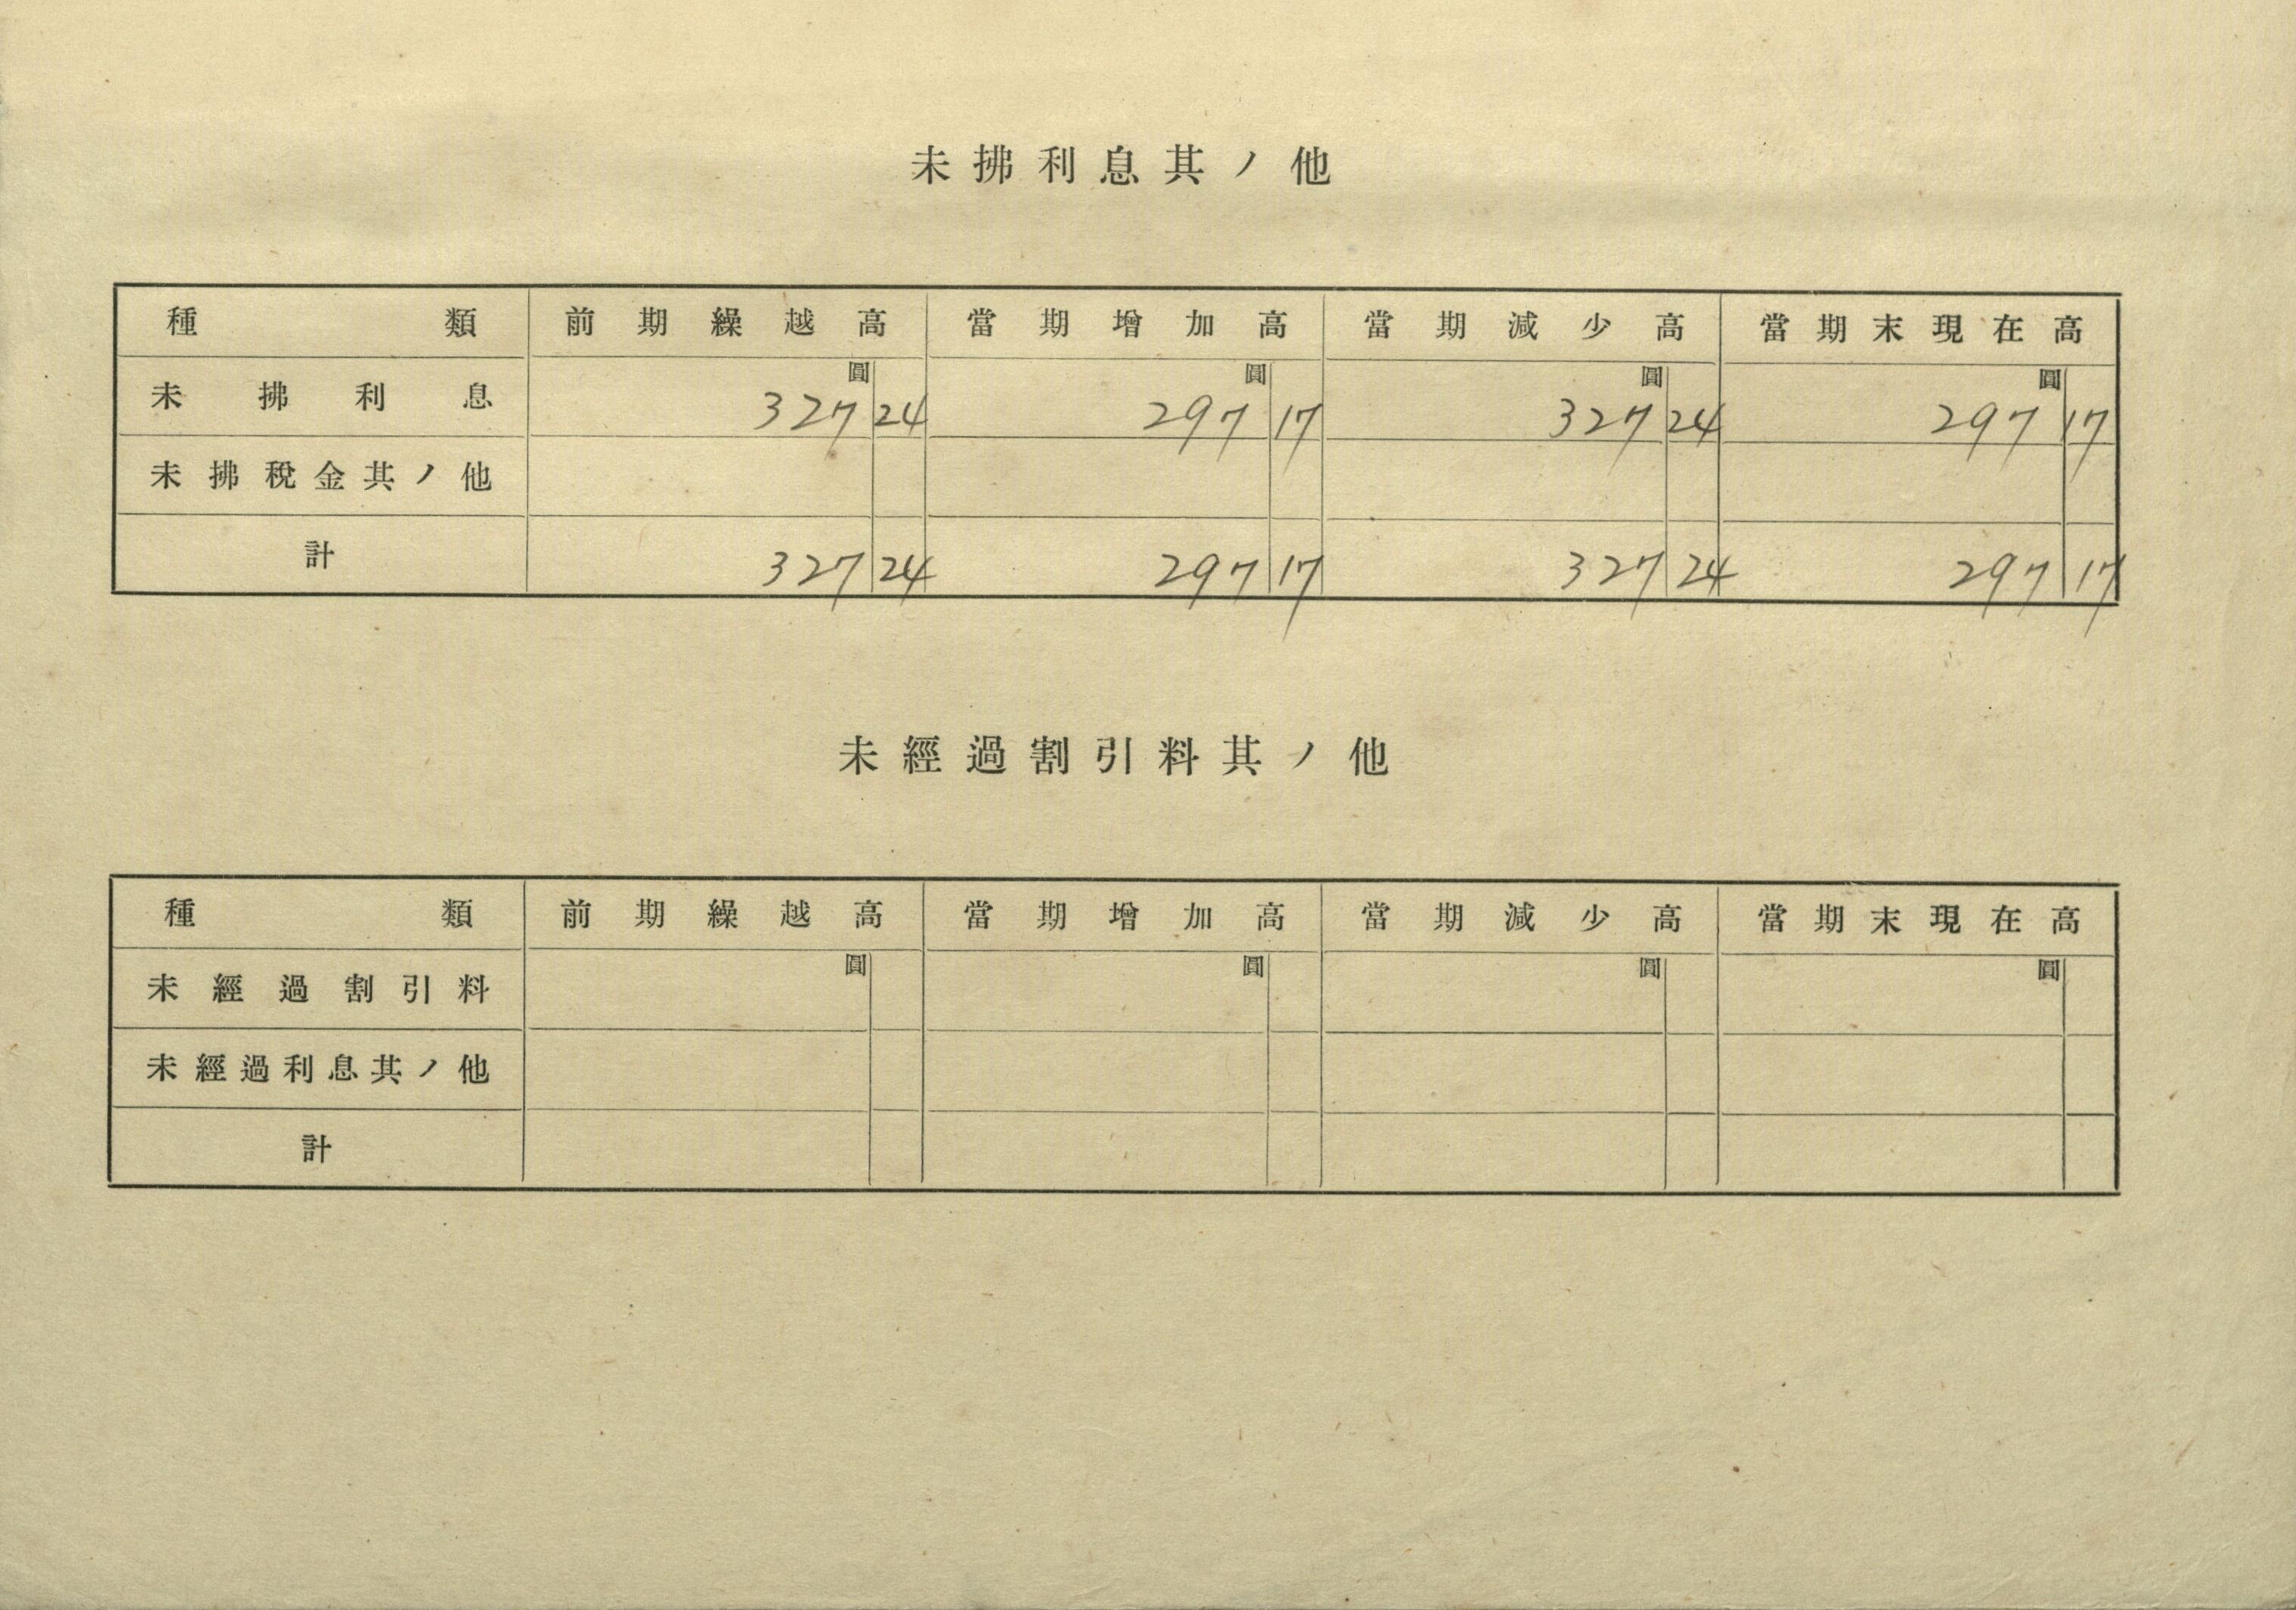 未拂利息其ノ他
種類 前期繰越高 當期增加高 當期減少高 當期末現在高
圓 圓 圓 圓
未拂利息 327 24 297 17 327 24 297 17
未拂稅金其ノ他
計 327 24 297 17 327 24 297 17
未經過割引料其ノ他
種類 前期繰越高 當期增加高 當期減少高 當期末現在高
圓 圓 圓 圓
未經過割引料
未經過利息其ノ他
計